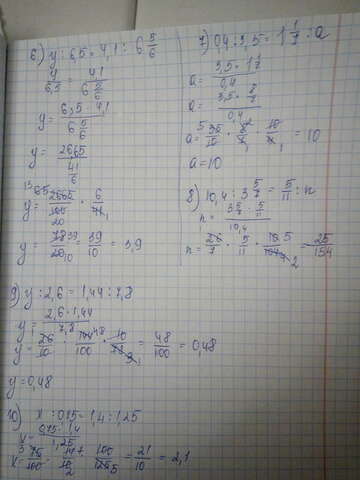 6) y : 6,5 = 4,1 : 6 5/6
y/6,5 = 4,1/(6 5/6)
y = (6,5 · 4,1)/(6 5/6)
y = 26,65/(41/6)
y = 2665/100 · 6/41
y = 78/20 = 39/10 = 3,9
7) 0,4 : 3,5 = 1 1/7 : a
a = (3,5 · 1 1/7)/0,4
a = (3,5 · 8/7)/0,4
a = 35/10 · 8/7 · 10/4 = 10
a = 10
8) 10,4 : 3 5/7 = 5/11 : n
n = (3 5/7 · 5/11)/10,4
n = 26/7 · 5/11 · 10/104 = 25/154
9) y : 2,6 = 1,44 : 7,8
y = (2,6 · 1,44)/7,8
y = 26/10 · 144/100 · 10/78 = 48/100 = 0,48
y = 0,48
10) x : 0,75 = 1,4 : 1,25
x = (0,75 · 1,4)/1,25
x = 75/100 · 14/10 · 100/125 = 21/10 = 2,1